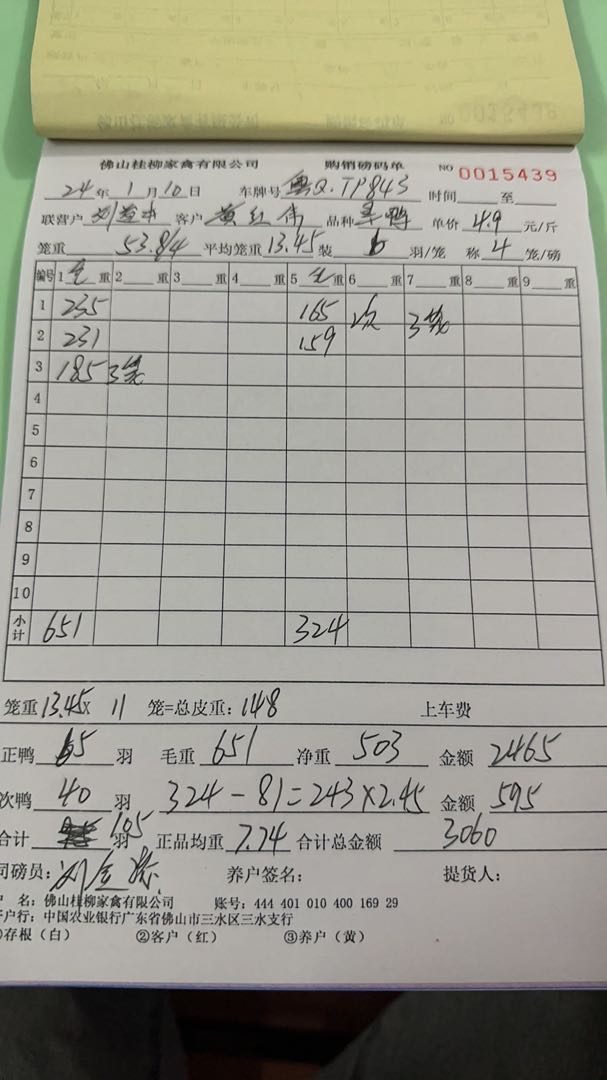 佛山桂柳家禽有限公司 购销磅码单 NO 0015439
24年1月10日 车牌号 粤Q.TP843 时间 至
联营户 客户 黄红伟 品种 鸭 单价 4.9 元/斤
笼重 53.8/4 平均笼重 13.45 装 6 羽/笼 称 4 笼/磅
编号 1 毛 重 2 重 3 重 4 重 5 毛 重 6 重 7 重 8 重 9 重
1 235 165 次 3笼
2 231 159
3 185 3笼
4
5
6
7
8
9
10
小计 651 324
笼重 13.45 x 11 笼=总皮重: 148 上车费
正鸭 65 羽 毛重 651 净重 503 金额 2465
次鸭 40 羽 324-81=243×2.45 金额 595
合计 105 羽 正品均重 7.74 合计总金额 3060
司磅员: 刘 养户签名: 提货人:
户 名: 佛山桂柳家禽有限公司 账号: 444 401 010 400 169 29
开户行: 中国农业银行广东省佛山市三水区三水支行
①存根（白） ②客户（红） ③养户（黄）